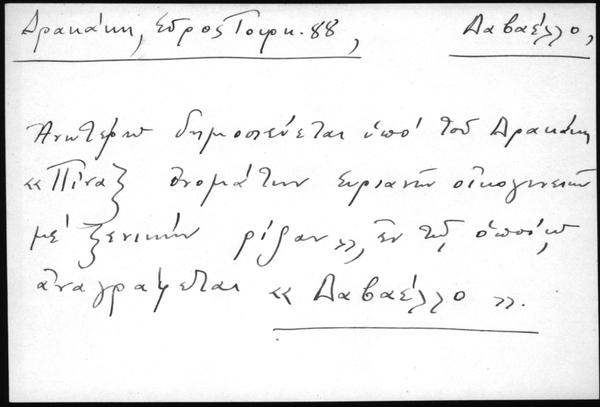 Δρακάκη, Σύρος Τουρκ. 88, Δαβαέλλο,
Ἀνωτέρω δημοσιεύεται ὑπό τοῦ Δρακάκη
«Πίναξ ὀνομάτων Συριανῶν οἰκογενειῶν
μέ ξενικήν ρίζαν», ἐν τῷ ὁποίῳ
ἀναγράφεται «Δαβαέλλο».